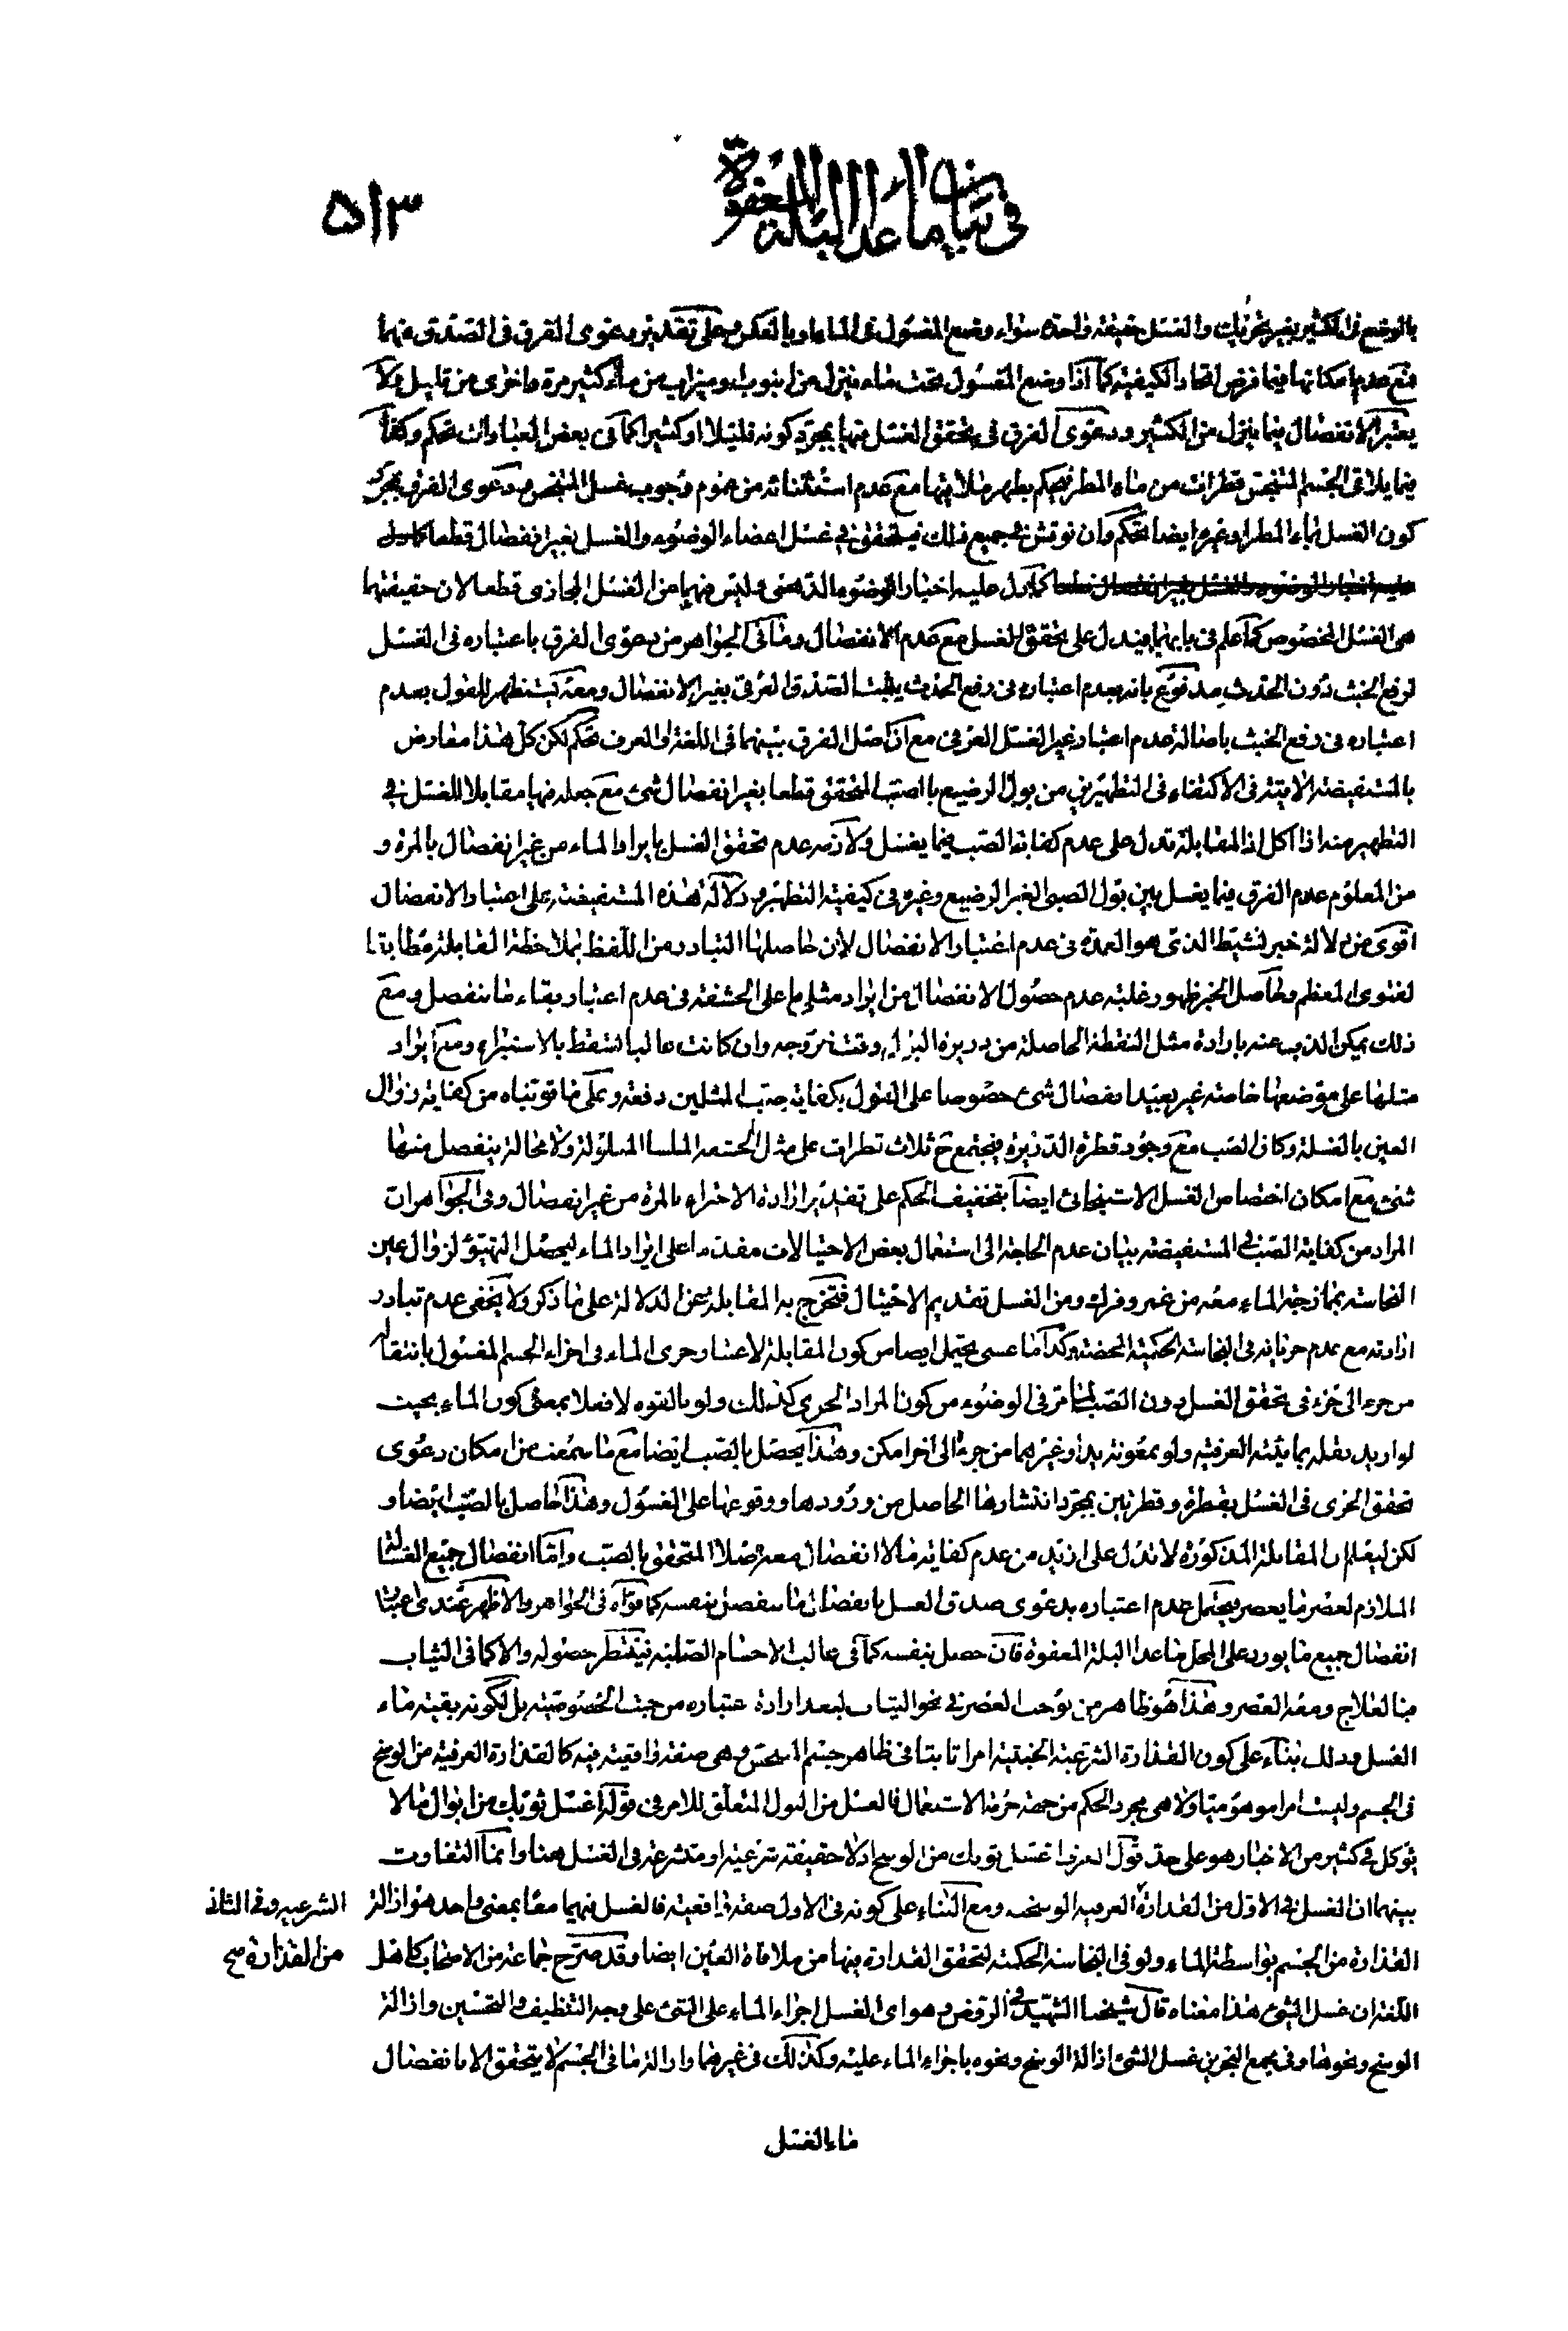 في بيان ما عدا البلة المعفوة
٥١٣
بالوضع في الكثير بغير تحريك والغسل حقيقة واحدة سواء وضع المغسول في الماء او بالعكس وعلى تقدير دعوى الفرق في الصدق فهما
مع عدم امكانها فيما فرض اتحاد الكيفية كما اذا وضع المغسول تحت ماء ينزل من انبوب او ميزاب من ماء كثير مرة واخرى من قليل ولا
يعتبر الانفصال فيما ينزل من الكثير ودعوى الفرق في تحقق الغسل فيها بمجرد كونه قليلا او كثيرا كما في بعض العبارات تحكم وكذا
فيما يلاقي الجسم المتنجس قطرات من ماء المطر فيحكم بطهر ملاقيها مع عدم استثنائه من عموم وجوب غسل المتنجس ودعوى الفرق بمجرد
كون الغسل بماء المطر او غيره ايضا تحكم وان نوقش في جميع ذلك فيتحقق في غسل اعضاء الوضوء والغسل بغير انفصال قطعا
كما دل عليه اخبار الوضوء مالدهني وليس فيهما من الغسل المجازي قطعا لان حقيقتهما
هي الغسل المخصوص كما علم في بابهما فيدل على تحقق الغسل مع عدم الانفصال وما في الجواهر من دعوى الفرق باعتباره في الغسل
لرفع الخبث دون الحدث مدفوع بانه بعدم اعتباره في رفع الحدث يثبت الصدق العرفي بغير الانفصال ومعه يستظهر للقول بعدم
اعتباره في رفع الخبث باصالة عدم اعتبار غير الغسل العرفي مع ان اصل الفرق بينهما في اللغة والعرف تحكم لكن كل هذا معارض
بالمستفيضة الاتية في الاكتفاء في التطهير من بول الرضيع بالصب المتحقق قطعا بغير انفصال شئ مع جعله فيها مقابلا للغسل في
التطهير منه اذا اكل اذ المقابلة تدل على عدم كفاية الصب فيما يغسل ولازمه عدم تحقق الغسل بايراد الماء من غير انفصال بالمرة و
من المعلوم عدم الفرق فيما يغسل بين بول الصبي الغير الرضيع وغيره في كيفية التطهير ودلالة هذه المستفيضة على اعتبار الانفصال
اقوى من دلالة خبر نشيط الذي هو العمدة في عدم اعتبار الانفصال لان حاصلها التبادر من اللفظ بملاحظة المقابلة مطابقا
لفتوى المعظم وحاصل الخبر ظهور غلبة عدم حصول الانفصال من ايراد مثلي ما على الحشفة في عدم اعتبار بقاء ما ينفصل ومع
ذلك يمكن الذب عنه بارادة مثل النقطة الحاصلة من دريرة البول وقت خروجه وان كانت غالبا تسقط بالاستبراء ومع ايراد
مثلها على موضعها خاصة غير بعيد انفصال شئ خصوصا على القول بكفاية صب المثلين دفعة وعلى ما قويناه من كفاية زوال
العين بالغسلة وكافي الصب مع وجود قطرة الدريرة فيجتمع ح ثلاث قطرات على مثل الحشفة الملساء ولا محالة ينفصل منها
شئ مع امكان اختصاص الغسل الاستنجائي ايضا بتخفيف الحكم على تقدير ارادة الاجتزاء بالمرة من غير انفصال وفي الجواهر ان
المراد من كفاية الصب في المستفيضة بيان عدم الحاجة الى استعمال بعض الاحتيالات مقدما على ايراد الماء ليحصل التهيؤ لزوال عين
النجاسة بممازجة الماء معه من غمز وفرك ومن الغسل تقديم الاحتيال فتخرج به المقابلة عن الدلالة على ما ذكر ولا يخفى عدم تبادر
ارادته مع عدم جريانه في النجاسة الحكمية المحضة وكذا ما عسى يحتمل ايضا من كون المقابلة لاعتبار جري الماء في اجزاء الجسم المغسول بانتقاله
من جزء الى جزء في تحقق الغسل دون الصب لما مر في الوضوء من كون المراد الجري كذلك ولو بالقوة لا فعلا بمعنى كون الماء بحيث
لو اريد نقله بمايئته العرفية ولو بمعونة يد او غيرهما من جزء الى اخر امكن وهذا يحصل بالصب ايضا مع ما سمعت من امكان دعوى
تحقق الجري في الغسل بقطرة وقطرتين بمجرد انتشارها الحاصل من ورودها ووقوعها على المغسول وهذا حاصل بالصب ايضا و
لكن ليعلم ان المقابلة المذكورة لا تدل على ازيد من عدم كفاية ما لا انفصال معه اصلا المتحقق بالصب واما انفصال جميع الغسالة
الملازم لعصر ما يعصر فيحتمل عدم اعتباره بدعوى صدق الغسل بانفصال ما ينفصل بنفسه كما قواه في الجواهر والاظهر عندي اعتبار
انفصال جميع ما يورد على المحل ما عدا البلة المعفوة فان حصل بنفسه كما في غالب الاجسام الصلبة فينتظر حصوله والا كما في الثياب
فبالعلاج ومنه العصر وهذا هو ظاهر من يوجب العصر في نحو الثياب لبعد ارادة اعتباره من حيث الخصوصية بل لكونه بقية ماء
الغسل وذلك بناء على كون القذارة الشرعية الخبثية امرا ثابتا في ظاهر جسم المتنجس وهي صفة واقعية فيه كالقذارة العرفية من الوسخ
في الجسم وليست امرا موهوميا ولا هي مجرد الحكم من جهة حرمة الاستعمال فالغسل من البول المتعلق للامر في قوله اغسل ثوبك من ابوال ما لا
يؤكل في كثير من الاخبار هو على حد قول العرف اغسل ثوبك من الوسخ اذ لا حقيقة شرعية او متشرعة في الغسل هنا وانما التفاوت
بينهما ان الغسل في الاول من القذارة الشرعية وفي الثاني من القذارة صح العرفية الوسخة ومع البناء على كونه في الاول صفة واقعية فالغسل فيهما معا بمعنى واحد هو ازالة
القذارة من الجسم بواسطة الماء ولو في النجاسة الحكمية لتحقق القذارة فيها من ملاقاة العين ايضا وقد صرح جماعة من الاصحاب كاهل
اللغة ان غسل الشئ هذا معناه قال شيخنا الشهيد في الروض وهو اي الغسل اجراء الماء على الشئ على وجه التنظيف والتحسين وازالة
الوسخ ونحوها وفي مجمع البحرين غسل الشئ ازالة الوسخ ونحوه باجراء الماء عليه وكذلك في غيرهما وازالة ما في الجسم لا يتحقق الا بانفصال
ماء الغسل